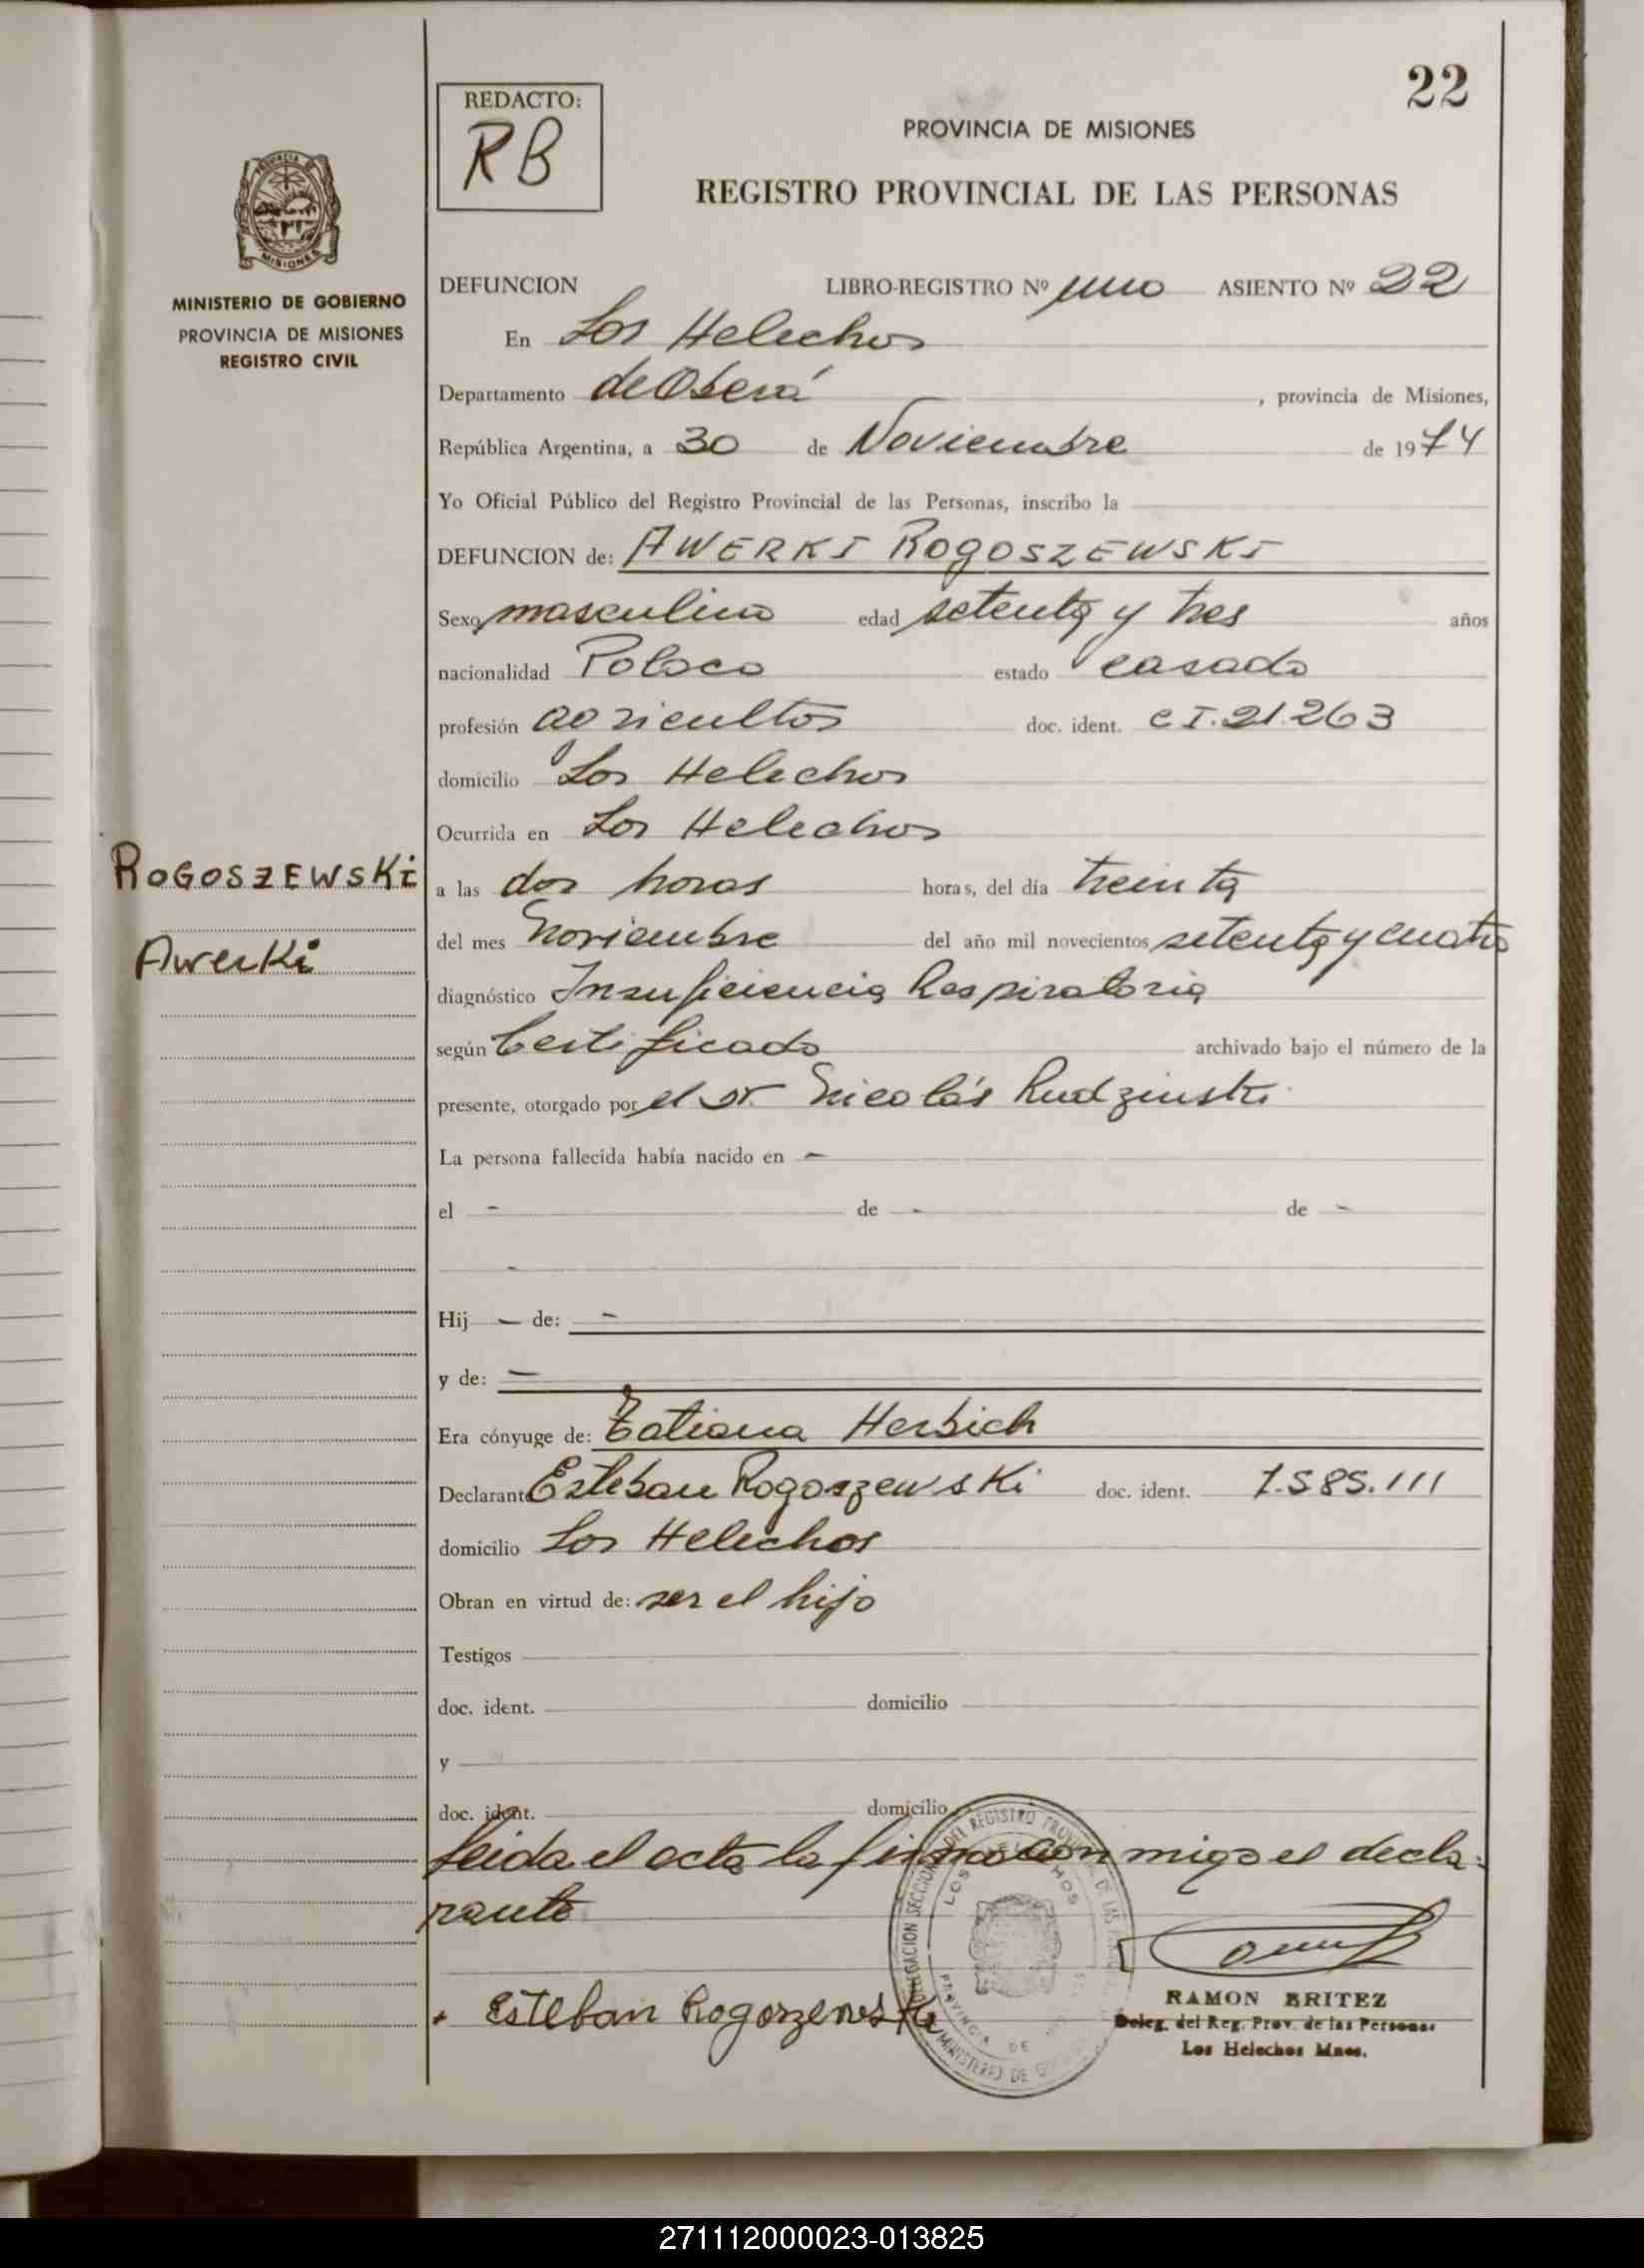 22
REDACTO:
RB
PROVINCIA DE MISIONES
REGISTRO PROVINCIAL DE LAS PERSONAS
MINISTERIO DE GOBIERNO
PROVINCIA DE MISIONES
REGISTRO CIVIL
DEFUNCION LIBRO-REGISTRO Nº uno ASIENTO Nº 22
En Los Helechos
Departamento de Oberá , provincia de Misiones,
República Argentina, a 30 de Noviembre de 1974
Yo Oficial Público del Registro Provincial de las Personas, inscribo la
DEFUNCION de: AWERKI ROGOSZEWSKI
Sexo masculino edad setenta y tres años
nacionalidad Polaco estado casado
profesión agricultor doc. ident. C I. 21.263
domicilio Los Helechos
Ocurrida en Los Helechos
ROGOSZEWSKi
a las dos horas horas, del día treinta
Awerki
del mes Noviembre del año mil novecientos setenta y cuatro
diagnóstico Insuficiencia Respiratoria
según Certificado archivado bajo el número de la
presente, otorgado por el Dr. Nicolás Rudzinski
La persona fallecida había nacido en -
el - de - de -
-
Hij - de: -
y de: -
Era cónyuge de: Tatiana Herbich
Declarante Esteban Rogoszewski doc. ident. 7.585.111
domicilio Los Helechos
Obran en virtud de: ser el hijo
Testigos
doc. ident. domicilio
y
doc. ident. domicilio
Leida el acta la firma con migo el decla-
rante
Esteban Rogoszewski
RAMON BRITEZ
Deleg. del Reg. Prov. de las Personas
Los Helechos Mnes.
271112000023-013825